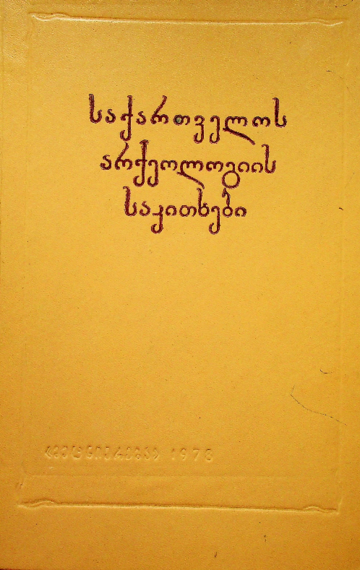 საქართველოს
არქეოლოგიის
საკითხები
მეცნიერება 1978